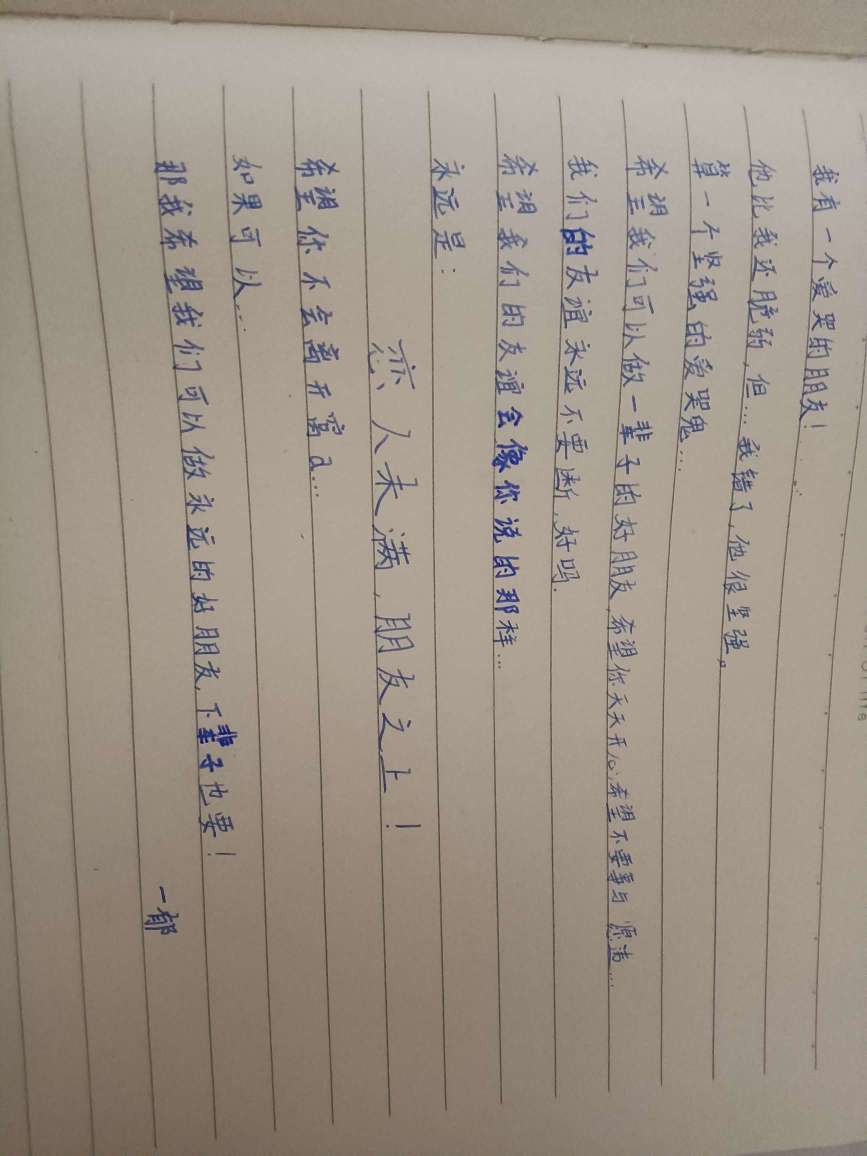 我有一个爱哭的朋友!
他比我还脆弱,但...我错了,他很坚强。
算一个坚强的爱哭鬼...
希望我们可以做一辈子的好朋友,希望你天天开心,希望不要参与
我们的友谊永远不要断,好吗.
希望我们的友谊会像你说的那样...
永远是:
恋人未满,朋友之上!
希望你不会离开窝a...
如果可以...
那我希望我们可以做永远的好朋友,下辈子也要!
一郁